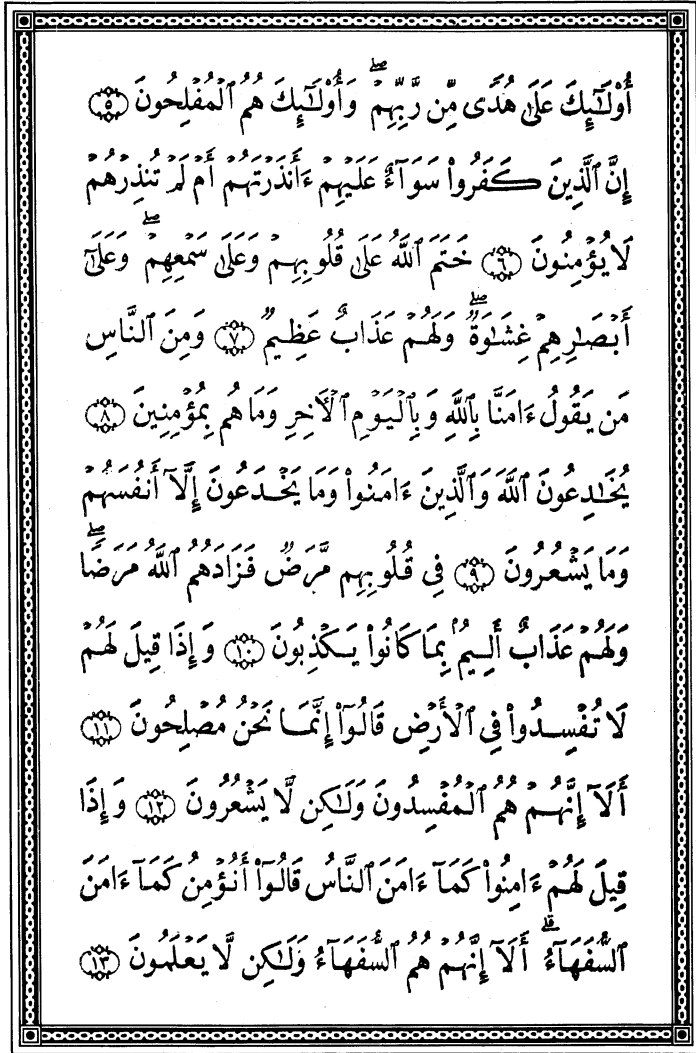 أُوْلَٰٓئِكَ عَلَىٰ هُدًى مِّن رَّبِّهِمْۖ وَأُوْلَٰٓئِكَ هُمُ ٱلْمُفْلِحُونَ ۝٥
إِنَّ ٱلَّذِينَ كَفَرُواْ سَوَآءٌ عَلَيْهِمْ ءَأَنذَرْتَهُمْ أَمْ لَمْ تُنذِرْهُمْ
لَا يُؤْمِنُونَ ۝٦ خَتَمَ ٱللَّهُ عَلَىٰ قُلُوبِهِمْ وَعَلَىٰ سَمْعِهِمْۖ وَعَلَىٰٓ
أَبْصَٰرِهِمْ غِشَٰوَةٌۖ وَلَهُمْ عَذَابٌ عَظِيمٌ ۝٧ وَمِنَ ٱلنَّاسِ
مَن يَقُولُ ءَامَنَّا بِٱللَّهِ وَبِٱلْيَوْمِ ٱلْأَخِرِ وَمَا هُم بِمُؤْمِنِينَ ۝٨
يُخَٰدِعُونَ ٱللَّهَ وَٱلَّذِينَ ءَامَنُواْ وَمَا يَخْدَعُونَ إِلَّآ أَنفُسَهُمْ
وَمَا يَشْعُرُونَ ۝٩ فِي قُلُوبِهِم مَّرَضٌ فَزَادَهُمُ ٱللَّهُ مَرَضًاۖ
وَلَهُمْ عَذَابٌ أَلِيمُۢ بِمَا كَانُواْ يَكْذِبُونَ ۝١٠ وَإِذَا قِيلَ لَهُمْ
لَا تُفْسِدُواْ فِي ٱلْأَرْضِ قَالُوٓاْ إِنَّمَا نَحْنُ مُصْلِحُونَ ۝١١
أَلَآ إِنَّهُمْ هُمُ ٱلْمُفْسِدُونَ وَلَٰكِن لَّا يَشْعُرُونَ ۝١٢ وَإِذَا
قِيلَ لَهُمْ ءَامِنُواْ كَمَآ ءَامَنَ ٱلنَّاسُ قَالُوٓاْ أَنُؤْمِنُ كَمَآ ءَامَنَ
ٱلسُّفَهَآءُۗ أَلَآ إِنَّهُمْ هُمُ ٱلسُّفَهَآءُ وَلَٰكِن لَّا يَعْلَمُونَ ۝١٣